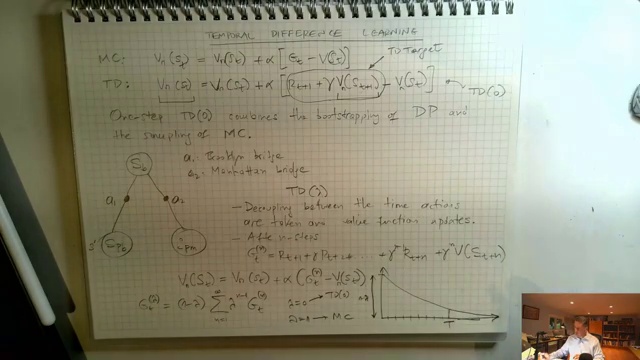 TEMPORAL DIFFERENCE LEARNING
MC: Vπ(St) = Vπ(St) + α [Gt - V(St)]
TD Target
TD: Vπ(S) = Vπ(St) + α [Rt+1 + γ Vπ(St+1) - Vπ(St)]
TD(0)
One-step TD(0) combines the bootstrapping of DP and
the sampling of MC.
S0
a1: Brooklyn bridge
a2: Manhattan bridge
a1
a2
TD(λ)
- Decoupling between the time actions
are taken and value function updates.
- After n-steps
Gt(n) = Rt+1 + γ Rt+2 + ... + γ Rt+n + γn V(St+n)
Vπ(St) = Vπ(St) + α (Gt(n) - Vπ(St))
λ=0 → TD(0)
→ MC
1-λ
T